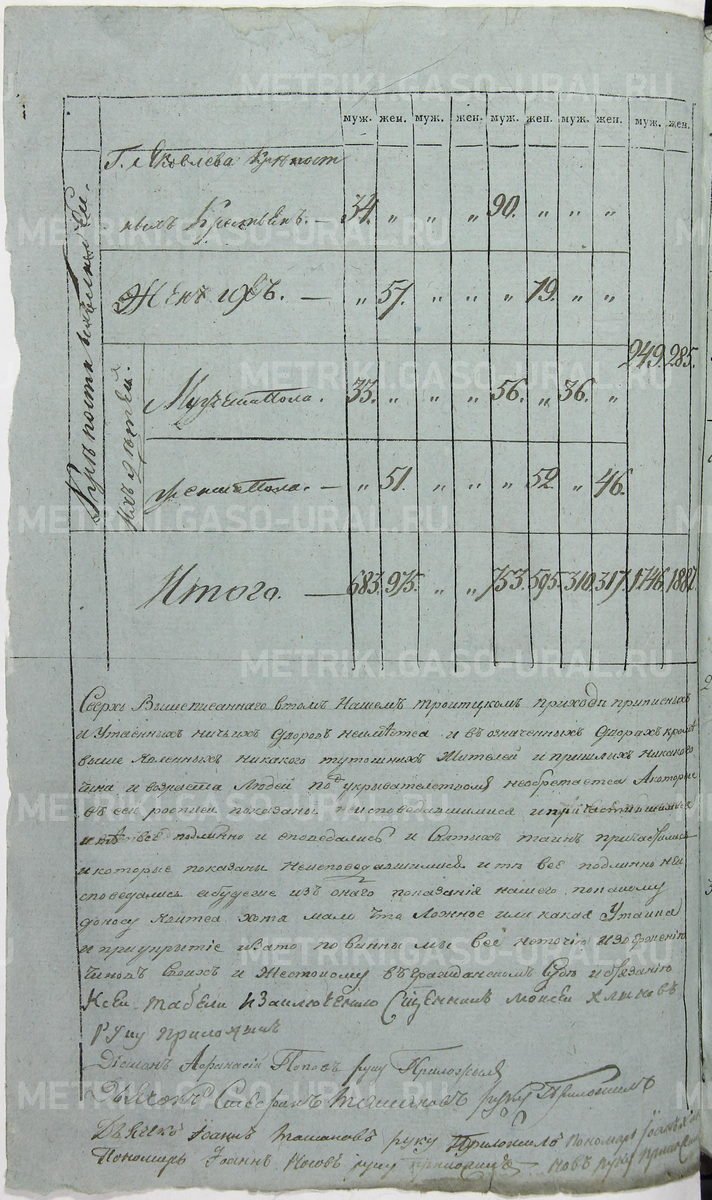 METRIKI.GASO-URAL.RU
муж. жен. муж. жен. муж. жен. муж. жен. муж. жен.
Г. Яковлева крѣпост
нымъ Крестьянъ. — 34. „ „ „ 90. „ „ „
Женъ ихъ. — „ 57. „ „ „ 79. „ „
249. 285.
ихъ дѣтей.
Мужеска пола. 33. „ „ „ 56. „ 36. „
женска пола. — „ 51. „ „ „ 52. „ 46.
Итого. — 683. 975. „ „ 753. 595. 310. 317. 1746. 1887.
Сверхъ Вышеписаннаго втомъ Нашемъ троитцкомъ приходѣ приписныхъ
и Утаенныхъ ничьихъ дворовъ неимѣется и въ означенныхъ дворахъ кромѣ
выше явленныхъ никакого тутошнихъ Жителей и пришлыхъ никакого
чина и возраста Людей под укрывателствомъ необретается А которые
въ сей росписи показаны исповедавшимися и причастившимися
и тѣ все подлинно и споведались и Святыхъ таинъ приобщились
и которые показаны Неисповедавшимися и тѣ все подлинно неи
споведались а будетже изъ онаго показанія нашего по чьему
доносу явитса хотя мало что Ложное или какая Утайка
и прикрытіе и зато повинны мы все неточію изверженію
чиновъ своихъ и Жестокому въ гражданскомъ Судѣ
Ксеи табели Священникъ Моисеи
руку приложилъ
Діаконъ Афанасій Поповъ руку Приложилъ
Дьячокъ руку Приложилъ
Дьячекъ Іоаннъ руку Приложилъ пономарь
Пономарь Іоаннъ Носовъ руку приложилъ